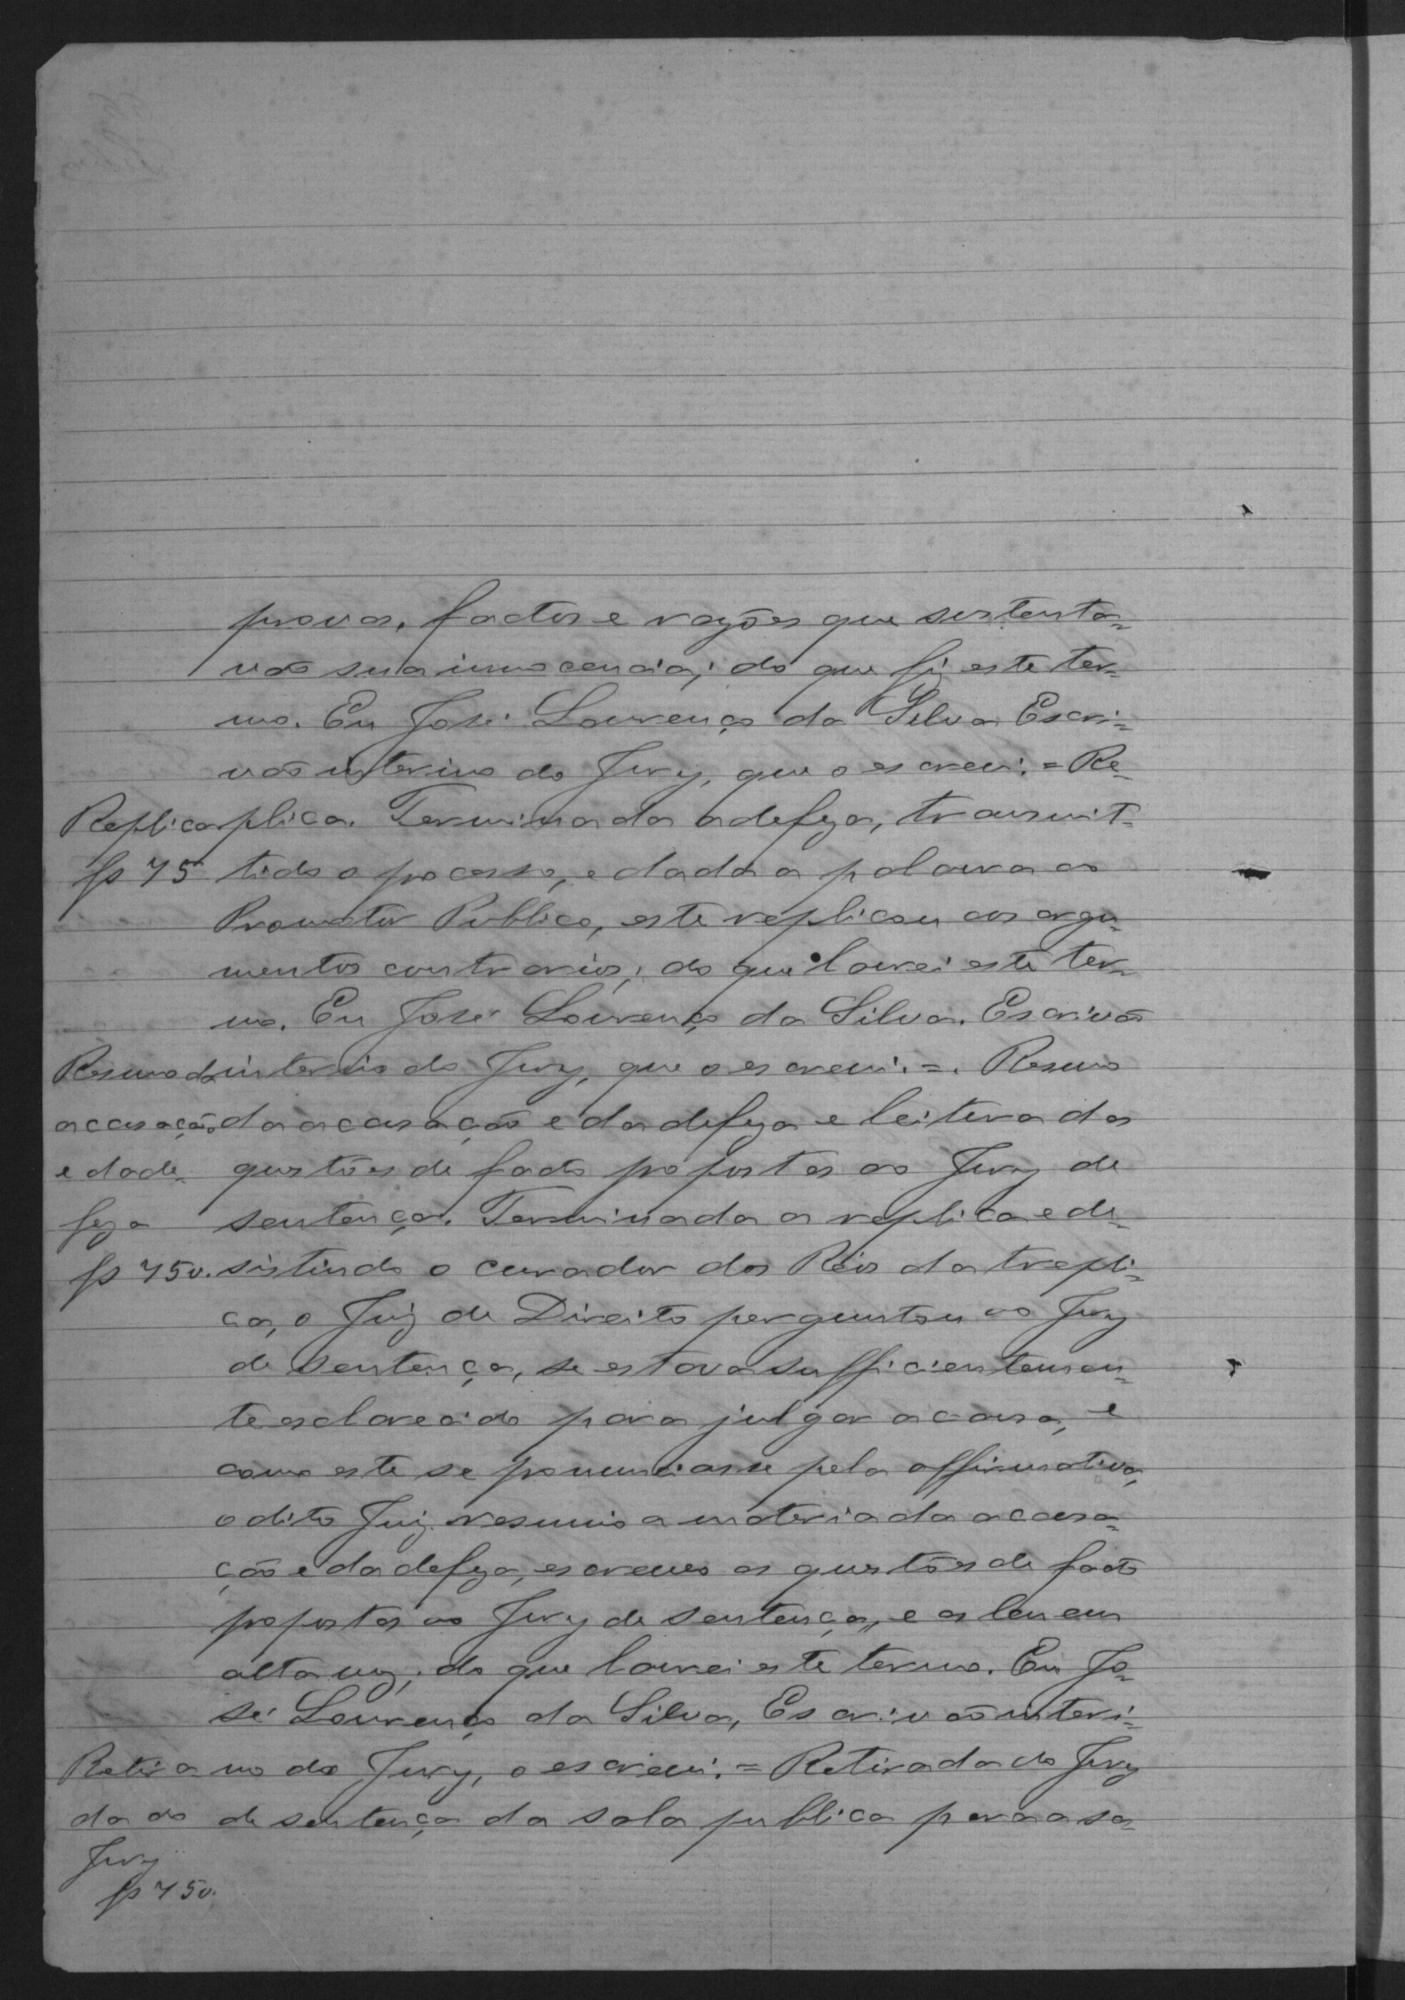 provas, factos e razões que sustenta-
vão sua innocencia; do que fiz este ter-
mo. Eu José Lourenço da Silva Escri-
vão interino do Jury, que o escrevi. = Re-
Replica plica. Terminada a defeza, transmit-
fs 75 tido o processo, e dada a palavra ao
Promotor Publico, este replicou aos argu-
mentos contrarios; do que lavrei este ter-
mo. Eu José Lourenço da Silva. Escrivão
Resumo da interino do Jury, que o escrevi. =. Resumo
accusação da accusação e da defeza e leitura das
e da de- questões de facto propostas ao Jury de
feza sentença. Terminada a replica e de-
fs 75v. sistindo o curador dos Réos da trepli-
ca, o Juiz de Direito perguntou ao Jury
de sentença, se estava sufficientemen-
te esclarecido para julgar a causa, e
como este se pronunciasse pela affirmativa,
o dito Juiz resumio a materia da accusa-
ção e da defeza, escreveu as questões de facto
propostas ao Jury de sentença, e as leu em
alta voz; do que lavrei este termo. Eu Jo-
sé Lourenço da Silva, Escrivão interi-
Retira no do Jury, o escrevi. = Retirada do Jury
da do de sentença da sala publica para a sa-
Jury
fs 75v.